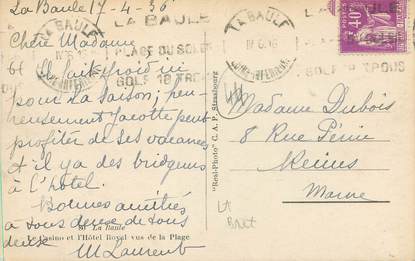 La Baule 17-4-36
Chère Madame
Il fait froid
pour la saison; heu-
reusement Jacotte peut
profiter de ses vacances
et il y a des bridgeurs
à l'hôtel.
Bonnes amitiés
à vous deux de tous
deux
M Laurent
LA BAULE
PLAGE DU SOLEIL
GOLF 18 TROUS
"Real-Photo" C. A. P. Strasbourg
LA BAULE
GOLF 18 TROUS
40c
Madame Dubois
8 Rue Périn
Reims
Marne
La Baule
Le Casino et l'Hôtel Royal vus de la Plage